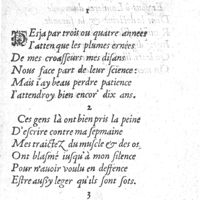 1
Desja par trois ou quatre annees
I'atten que les plumes ernées
De mes croasseurs mes disans
Nous face part de leur science:
Mais i'ay beau perdre patience
I'attendroy bien encor' dix ans.
2
Ces gens là ont bien pris la peine
D'escrire contre ma sepmaine
Mes traictez du muscle & des os
Ont blasmé iusqu'à mon silence
Pour n'auoir voulu en deffence
Estre aussy leger qu'ils sont sots.
3